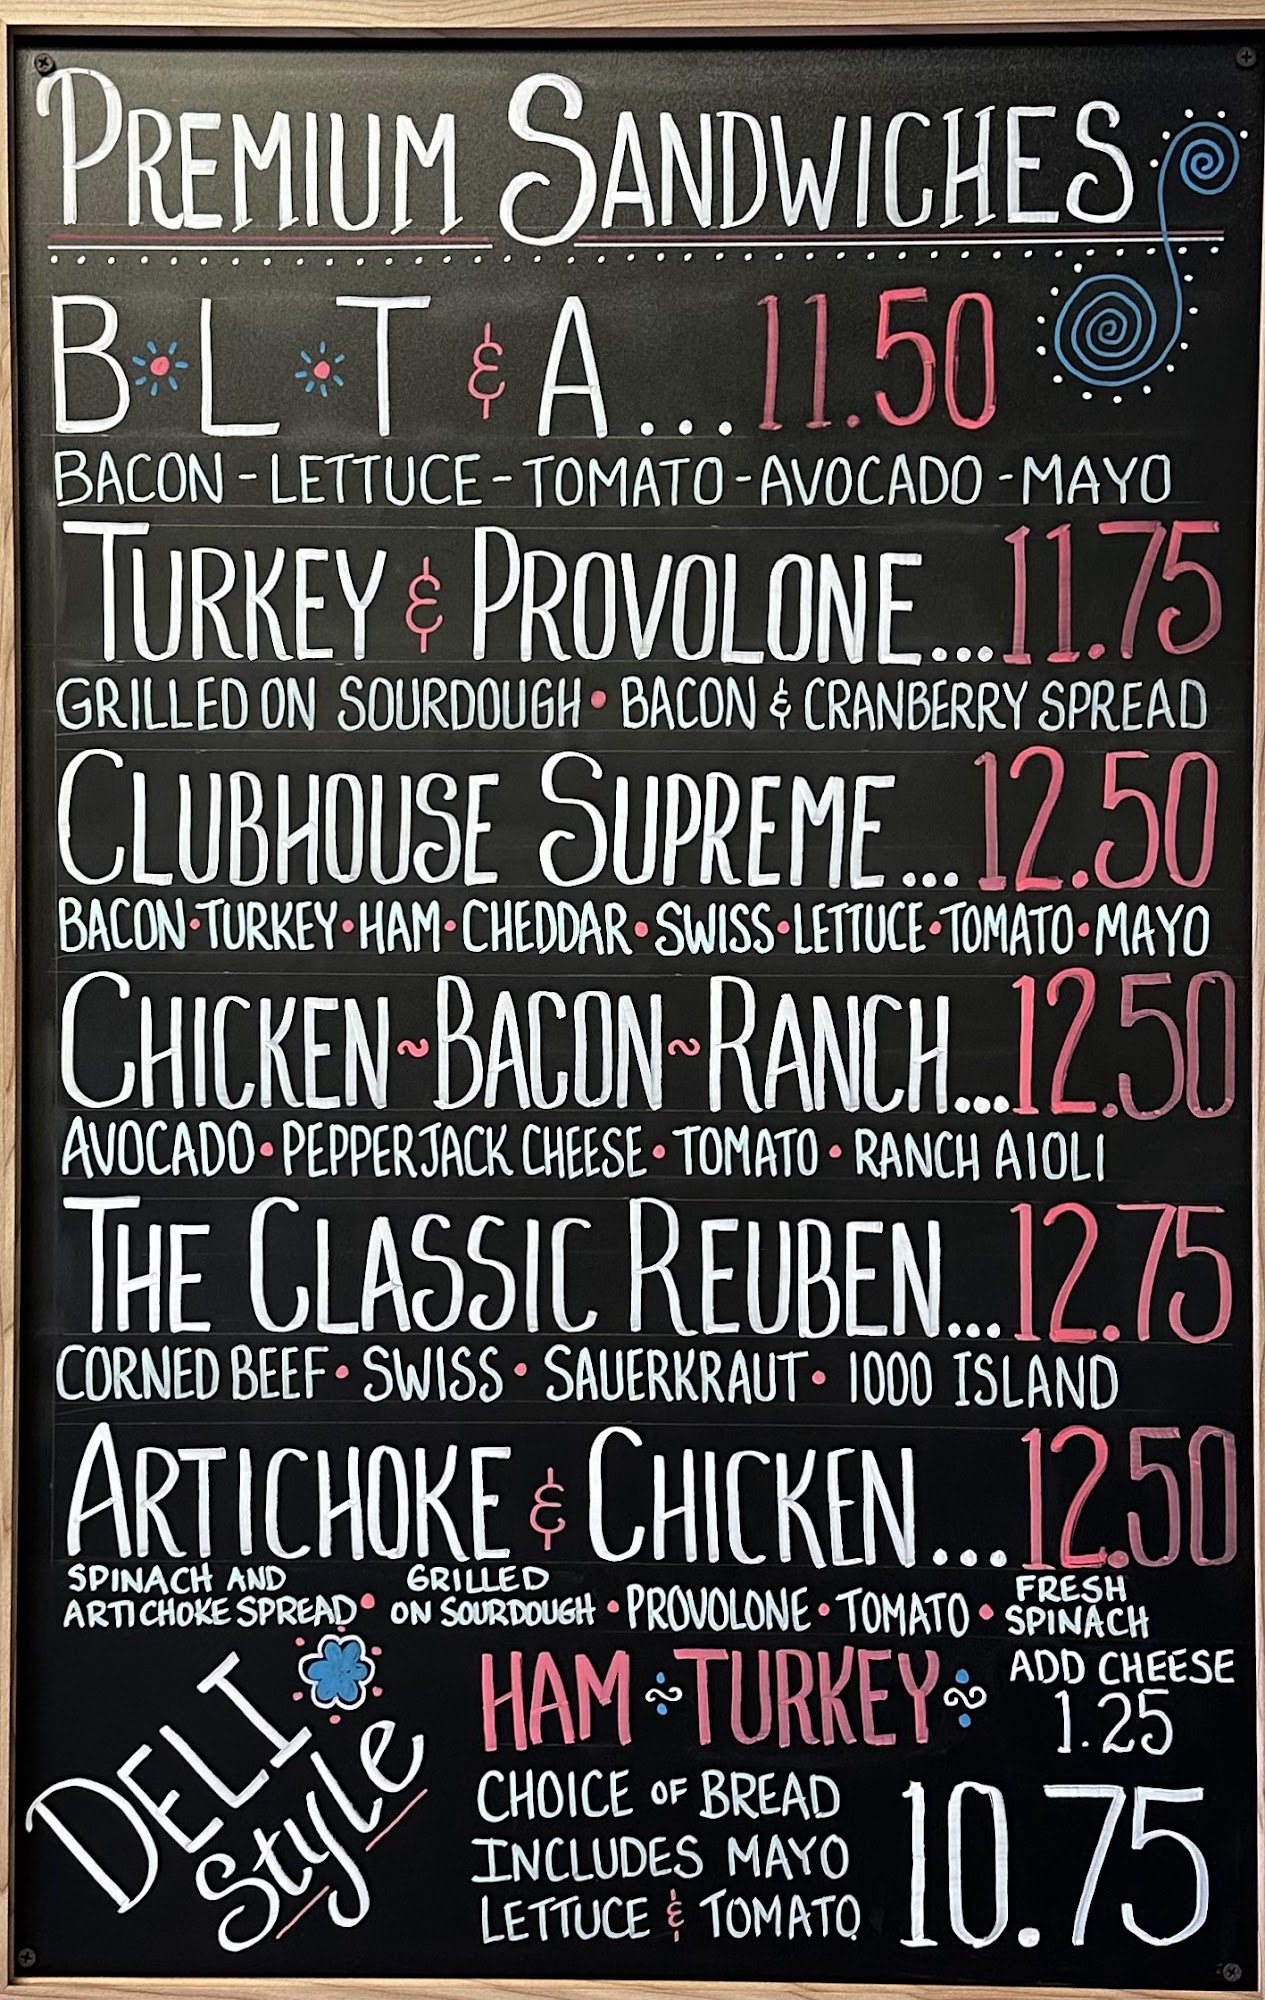 PREMIUM SANDWICHES
B L T & A... 11.50
BACON - LETTUCE - TOMATO - AVOCADO - MAYO
TURKEY & PROVOLONE... 11.75
GRILLED ON SOURDOUGH • BACON & CRANBERRY SPREAD
CLUBHOUSE SUPREME... 12.50
BACON • TURKEY • HAM • CHEDDAR • SWISS • LETTUCE • TOMATO • MAYO
CHICKEN ~ BACON ~ RANCH... 12.50
AVOCADO • PEPPERJACK CHEESE • TOMATO • RANCH AIOLI
THE CLASSIC REUBEN... 12.75
CORNED BEEF • SWISS • SAUERKRAUT • 1000 ISLAND
ARTICHOKE & CHICKEN... 12.50
SPINACH AND ARTICHOKE SPREAD • GRILLED ON SOURDOUGH • PROVOLONE • TOMATO • FRESH SPINACH
DELI
Style
HAM ~ TURKEY ~
ADD CHEESE
1.25
CHOICE OF BREAD
INCLUDES MAYO
LETTUCE & TOMATO
10.75